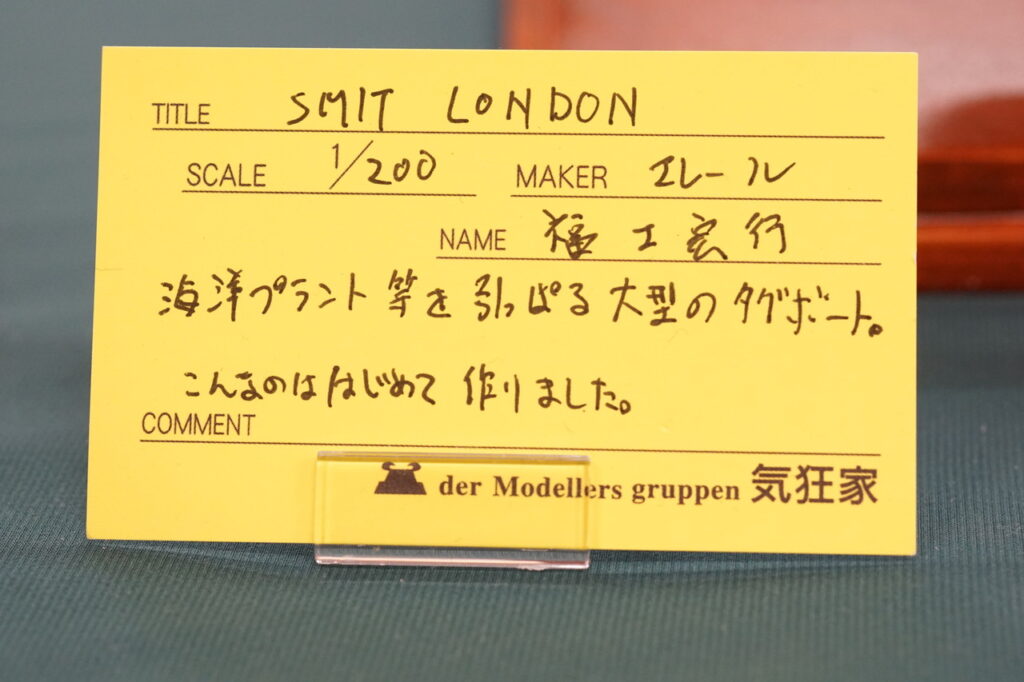 TITLE SMIT LONDON
SCALE 1/200 MAKER エレール
NAME 福工宏行
海洋プラント等を引っぱる大型のタグボート。
こんなのははじめて作りました。
COMMENT
der Modellers gruppen 気狂家